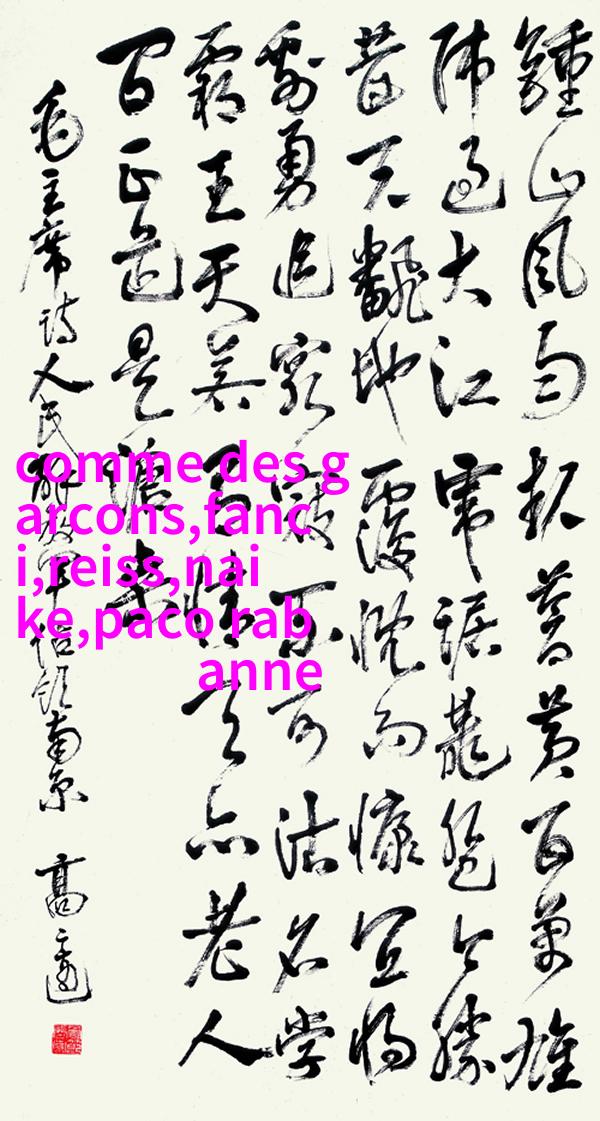 鍾山风雨起蒼黄百萬雄
师過大江虎踞龍盤今勝
昔天飜地覆慨而慷宜将
剩勇追窮寇不可沽名学
霸王天若有情天亦老人
间正道是滄桑
毛主席诗人民解放军佔领南京 高
comme des g
arcons,fanc
i,reiss,nai
ke,paco rab
anne